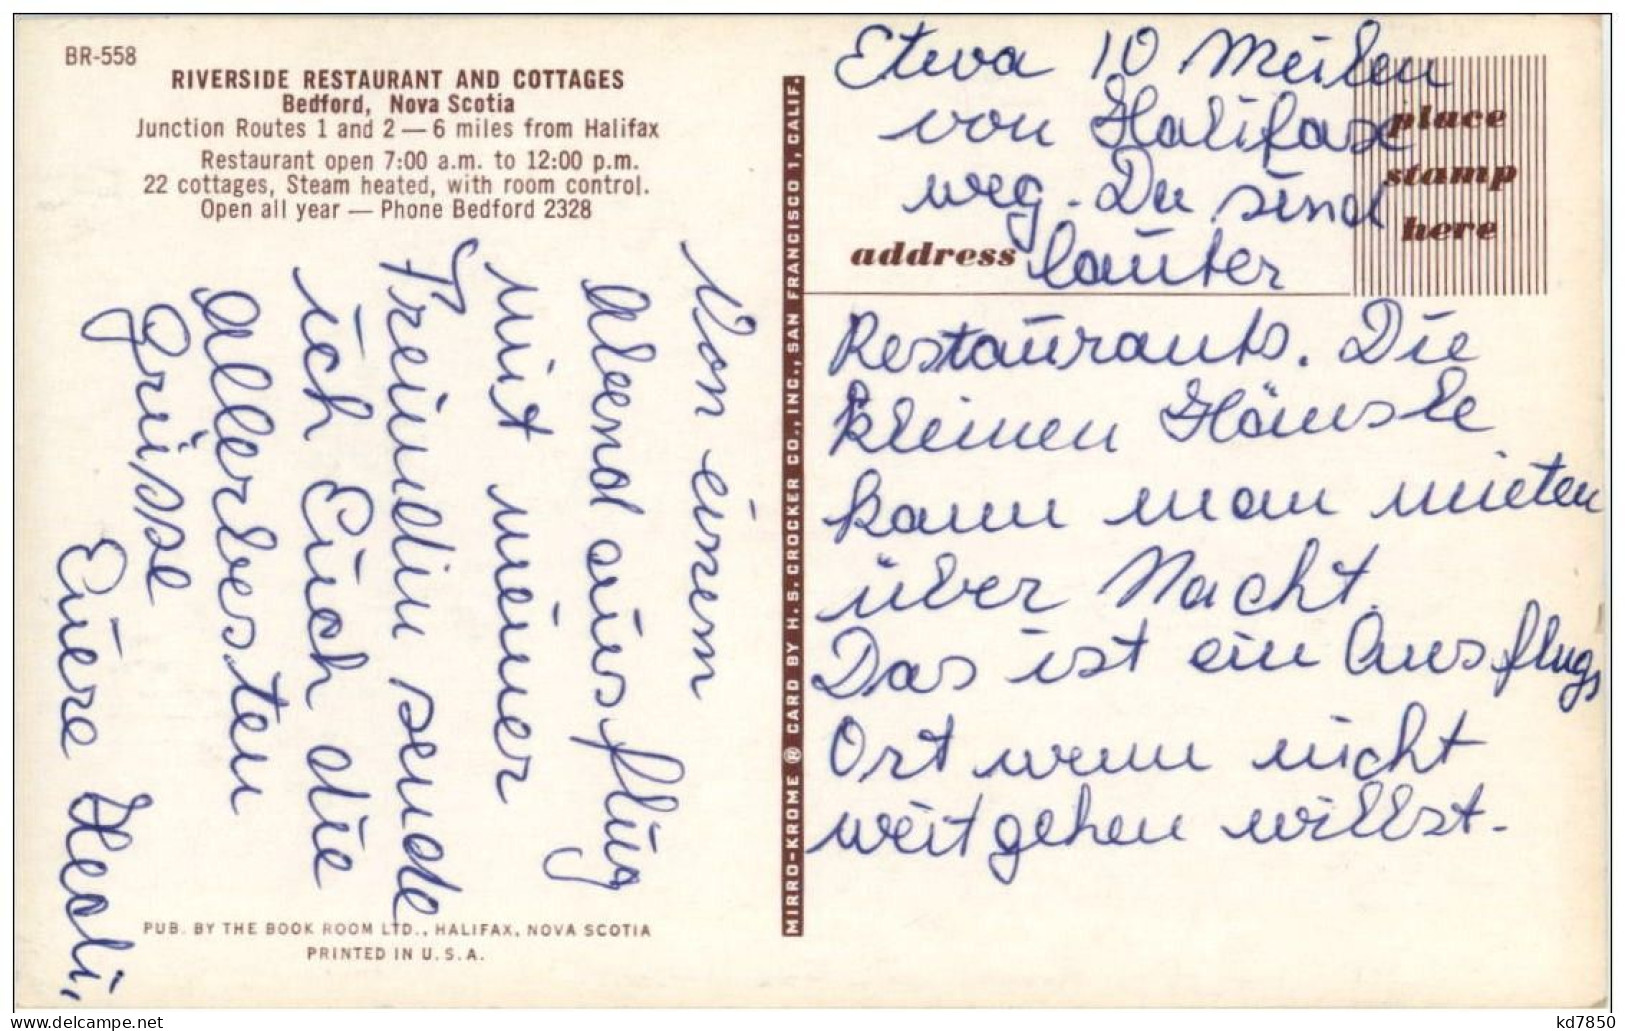 BR-558
RIVERSIDE RESTAURANT AND COTTAGES
Bedford, Nova Scotia
Junction Routes 1 and 2 — 6 miles from Halifax
Restaurant open 7:00 a.m. to 12:00 p.m.
22 cottages, Steam heated, with room control.
Open all year — Phone Bedford 2328
Von einem
Abend ausflug
mit meiner
Freundin sende
ich Euch die
allerbesten
Grüsse
Eure Hedi,
PUB. BY THE BOOK ROOM LTD., HALIFAX, NOVA SCOTIA
PRINTED IN U.S.A.
MIRRO-KROME ® CARD BY H. S. CROCKER CO., INC., SAN FRANCISCO 1, CALIF.
place
stamp
here
address
Etwa 10 Meilen
von Halifax
weg. Da sind
lauter
Restaurants. Die
kleinen Häusle
kann man mieten
über Nacht.
Das ist ein Ausflugs
Ort wenn nicht
weit gehen willst.
delcampe.net
kd7850